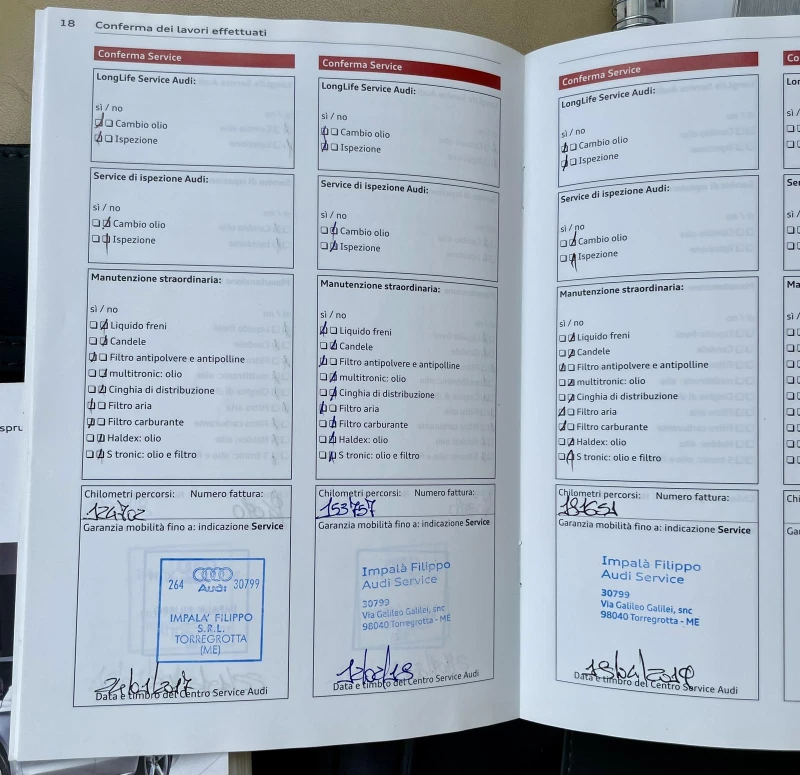 18 Conferma dei lavori effettuati
Conferma Service
LongLife Service Audi:
sì / no
Cambio olio
Ispezione
Service di ispezione Audi:
sì / no
Cambio olio
Ispezione
Manutenzione straordinaria:
sì / no
Liquido freni
Candele
Filtro antipolvere e antipolline
multitronic: olio
Cinghia di distribuzione
Filtro aria
Filtro carburante
Haldex: olio
S tronic: olio e filtro
Chilometri percorsi: Numero fattura:
124702
Garanzia mobilità fino a: indicazione Service
264 Audi 30799
IMPALA' FILIPPO
S.R.L.
TORREGROTTA
(ME)
24/01/2017
Data e timbro del Centro Service Audi
Conferma Service
LongLife Service Audi:
sì / no
Cambio olio
Ispezione
Service di ispezione Audi:
sì / no
Cambio olio
Ispezione
Manutenzione straordinaria:
sì / no
Liquido freni
Candele
Filtro antipolvere e antipolline
multitronic: olio
Cinghia di distribuzione
Filtro aria
Filtro carburante
Haldex: olio
S tronic: olio e filtro
Chilometri percorsi: Numero fattura:
153757
Garanzia mobilità fino a: indicazione Service
Impalà Filippo
Audi Service
30799
Via Galileo Galilei, snc
98040 Torregrotta - ME
12/02/18
Data e timbro del Centro Service Audi
Conferma Service
LongLife Service Audi:
sì / no
Cambio olio
Ispezione
Service di ispezione Audi:
sì / no
Cambio olio
Ispezione
Manutenzione straordinaria:
sì / no
Liquido freni
Candele
Filtro antipolvere e antipolline
multitronic: olio
Cinghia di distribuzione
Filtro aria
Filtro carburante
Haldex: olio
S tronic: olio e filtro
Chilometri percorsi: Numero fattura:
181651
Garanzia mobilità fino a: indicazione Service
Impalà Filippo
Audi Service
30799
Via Galileo Galilei, snc
98040 Torregrotta - ME
Data e timbro del Centro Service Audi